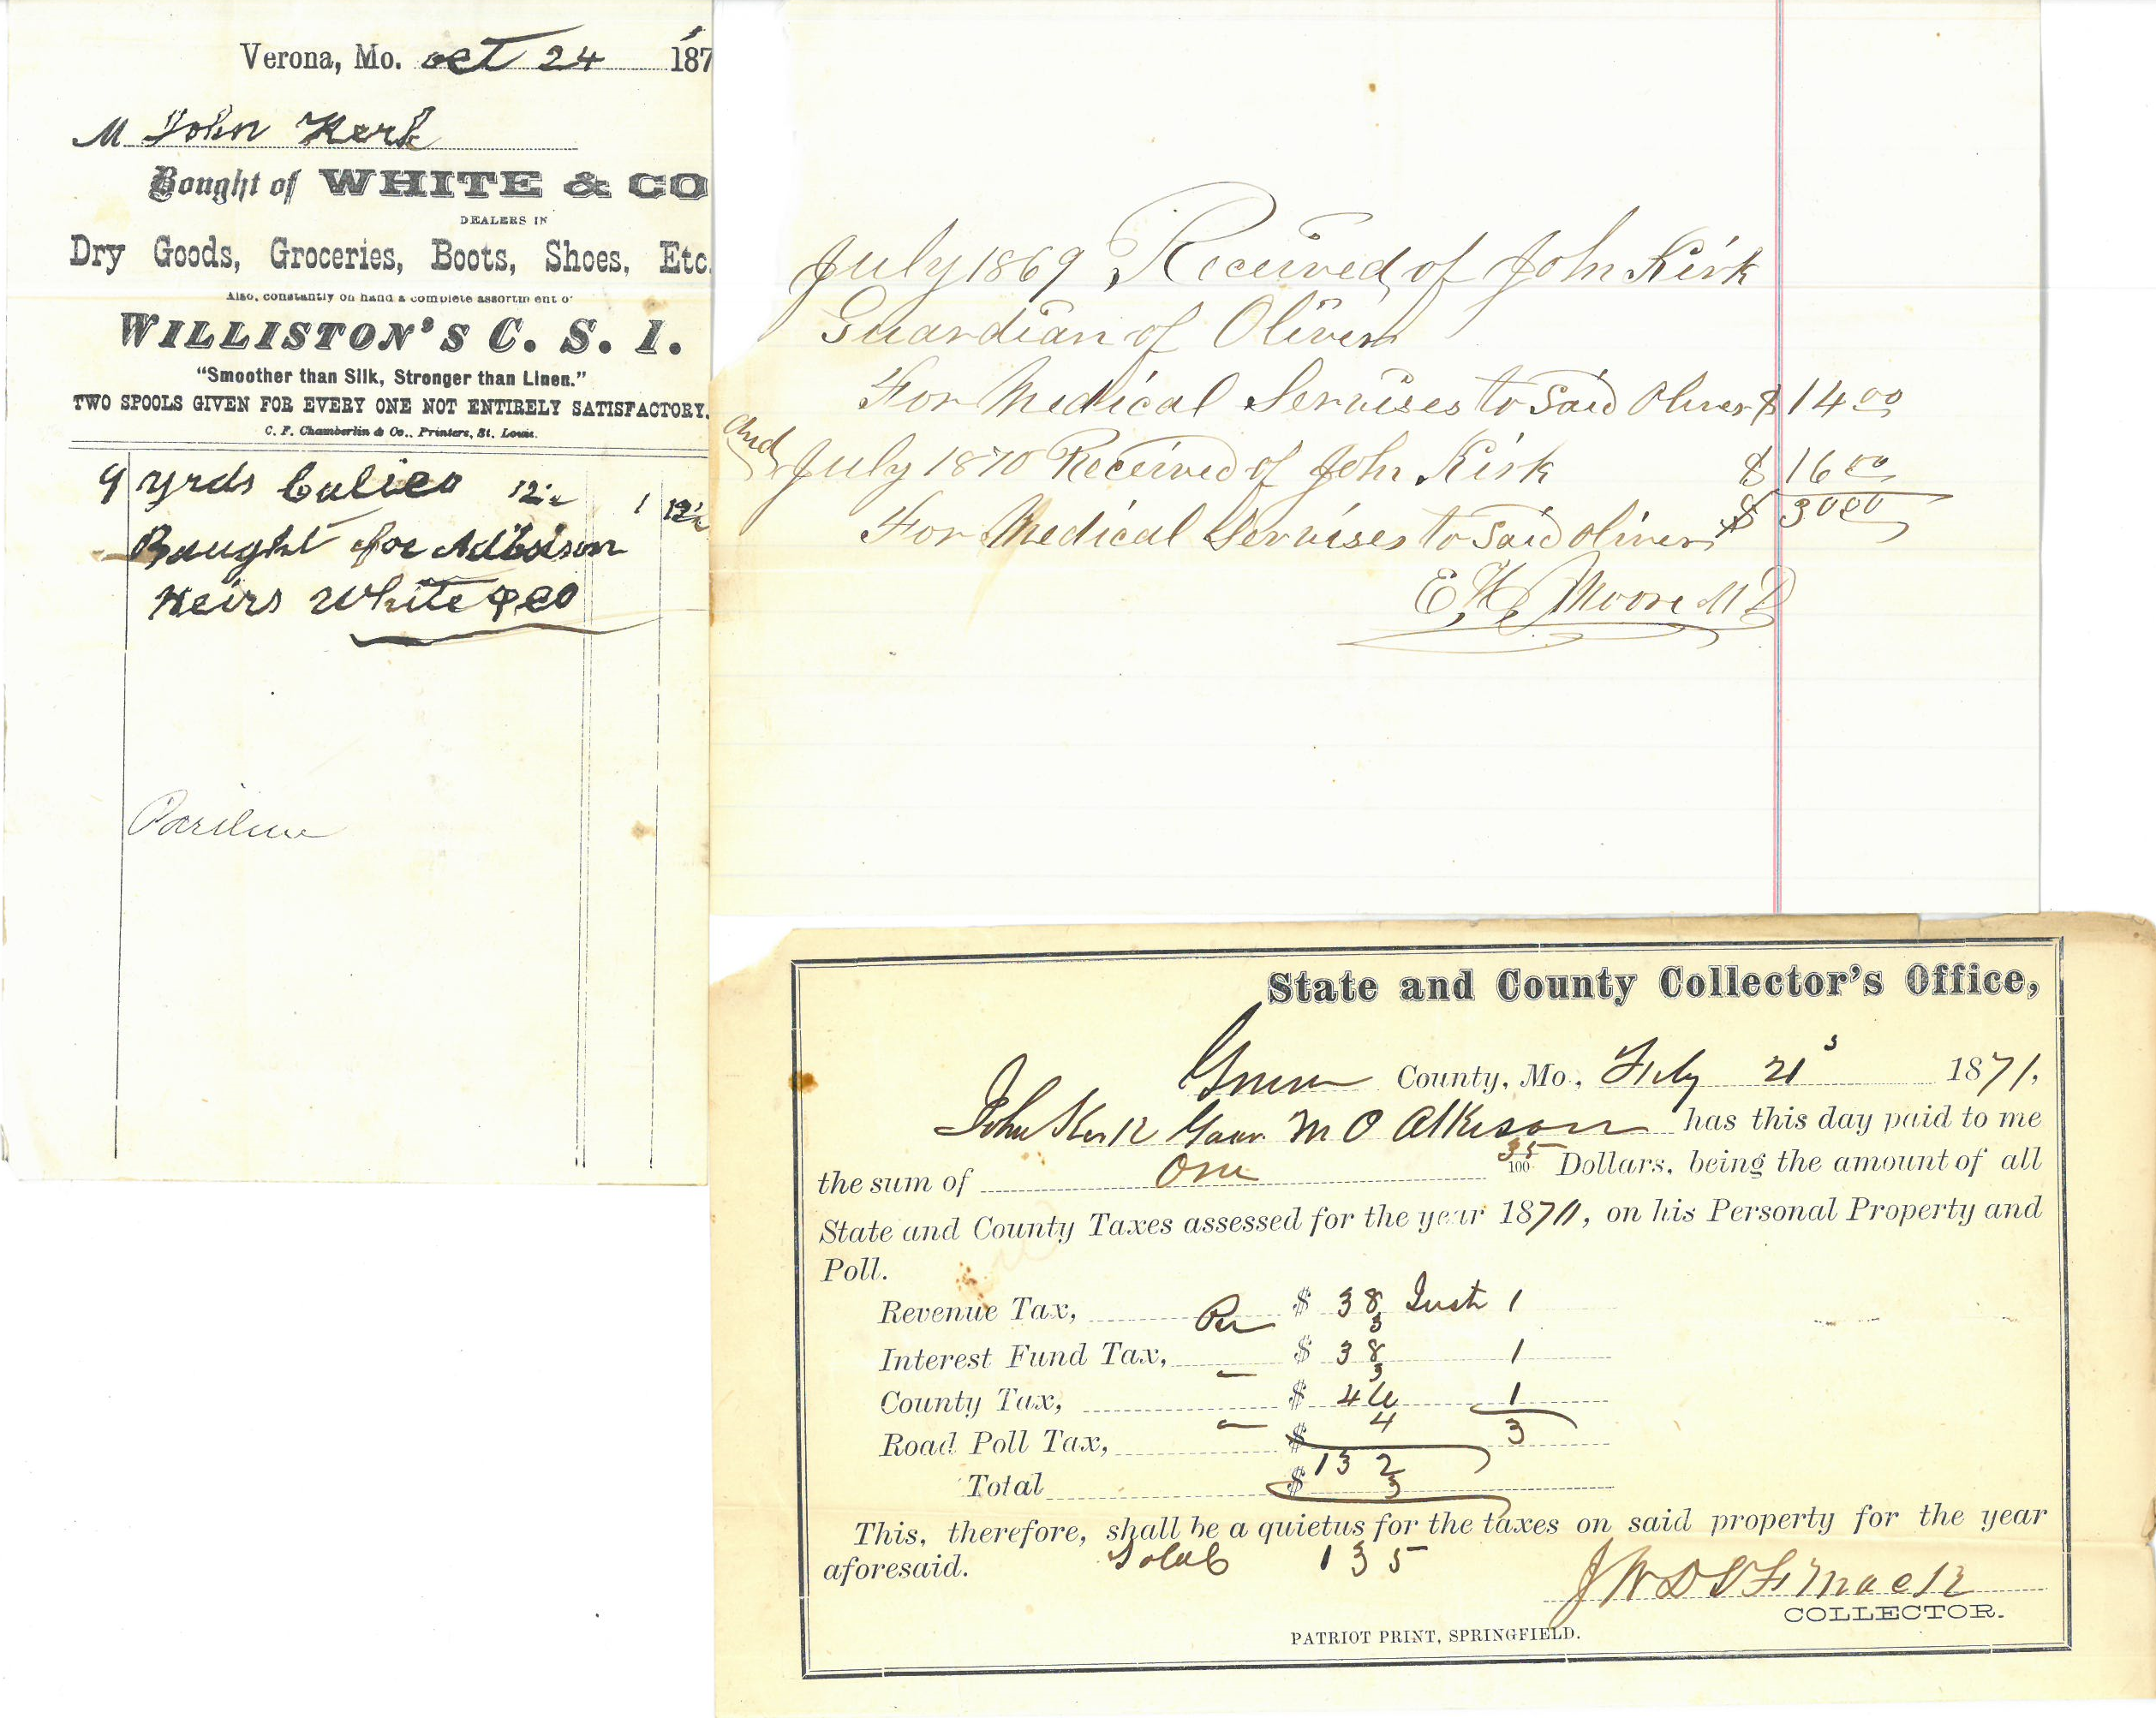 Verona, Mo. oct 24 187
M John Kerk
Bought of WHITE & CO
DEALERS IN
Dry Goods, Groceries, Boots, Shoes, Etc.
Also, constantly on hand a complete assortment of
WILLISTON'S C. S. 1.
"Smoother than Silk, Stronger than Linen."
TWO SPOOLS GIVEN FOR EVERY ONE NOT ENTIRELY SATISFACTORY.
C. F. Chamberlin & Co., Printers, St. Louis.
9 yrds Calico 12½ 1 12½
Baught for
Heirs White & co
July 1869 Received of John Kirk
Guardian of Oliver
For Medical Servises to Said Oliver $ 14 00
and July 1870 Received of John Kirk $ 16 00
For Medical Servises to Said Oliver $ 30 00
E. H. Moore M D
State and County Collector's Office,
Green County, Mo., Feby 21s 1871,
John Kerk Gaur M O Atkeson has this day paid to me
the sum of One 35/100 Dollars, being the amount of all
State and County Taxes assessed for the year 1870, on his Personal Property and
Poll.
Revenue Tax, Per $ 38 Inst 1
3
Interest Fund Tax, $ 38 1
3
County Tax, $ 46 1
4 3
Road Poll Tax, $
Total $ 132
3
This, therefore, shall be a quietus for the taxes on said property for the year
aforesaid. Total 135
COLLECTOR.
PATRIOT PRINT, SPRINGFIELD.